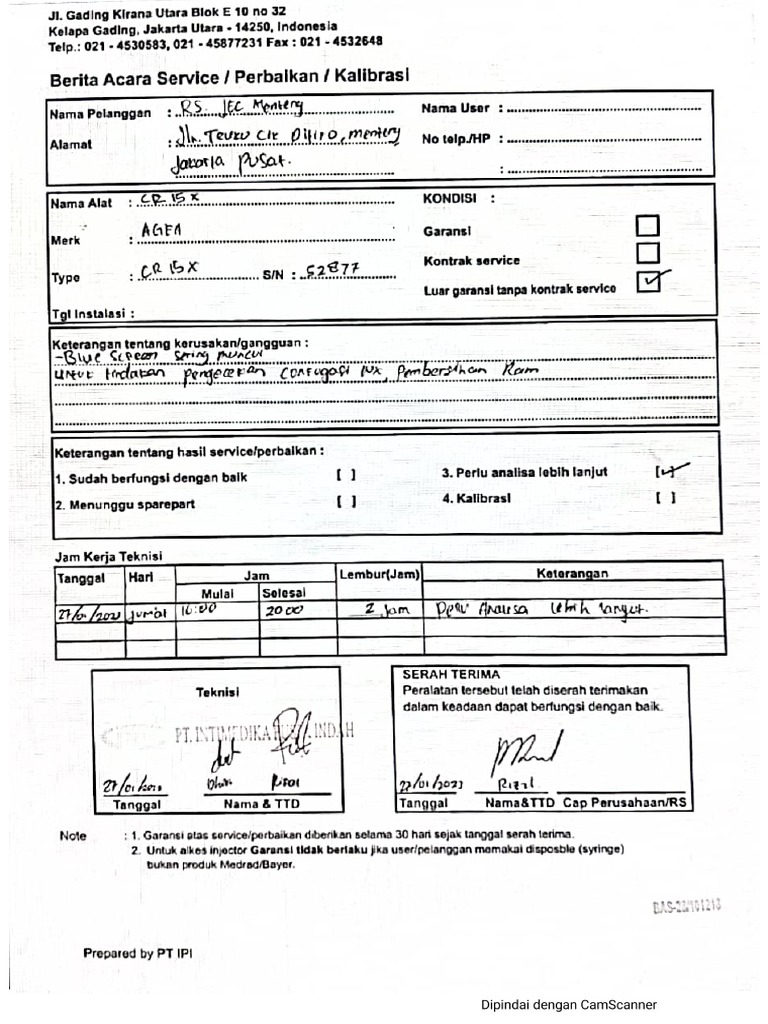 Jl. Gading Kirana Utara Blok E 10 no 32
Kelapa Gading, Jakarta Utara - 14250, Indonesia
Telp.: 021 - 4530583, 021 - 45877231 Fax : 021 - 4532648
Berita Acara Service / Perbaikan / Kalibrasi
Nama Pelanggan : RS. JEC Menteng
Nama User :
Alamat : Jln. Teuku Cik Ditiro, menteng
No telp./HP :
Jakarta Pusat.
:
Nama Alat : CR 15 X
KONDISI :
Merk : AGFA
Garansi
Kontrak service
Type : CR 15 X S/N : 52877
Luar garansi tanpa kontrak service
Tgl Instalasi :
Keterangan tentang kerusakan/gangguan :
- Blue Screen sering muncul
untuk tindakan pengecekan nx, Pembersihan Ram
Keterangan tentang hasil service/perbaikan :
1. Sudah berfungsi dengan baik [ ]
3. Perlu analisa lebih lanjut [✓]
2. Menunggu sparepart [ ]
4. Kalibrasi [ ]
Jam Kerja Teknisi
Tanggal Hari Jam Lembur(Jam) Keterangan
Mulai Selesai
jumat 20 00 2 Jam Perlu Analisa lebih lanjut.
Teknisi
PT. INTIMEDIKA INDAH
Tanggal Nama & TTD
SERAH TERIMA
Peralatan tersebut telah diserah terimakan
dalam keadaan dapat berfungsi dengan baik.
27/01/2023 Rizal
Tanggal Nama&TTD Cap Perusahaan/RS
Note : 1. Garansi atas service/perbaikan diberikan selama 30 hari sejak tanggal serah terima.
2. Untuk alkes injector Garansi tidak berlaku jika user/pelanggan memakai disposble (syringe)
bukan produk Medrad/Bayer.
Prepared by PT IPI
Dipindai dengan CamScanner